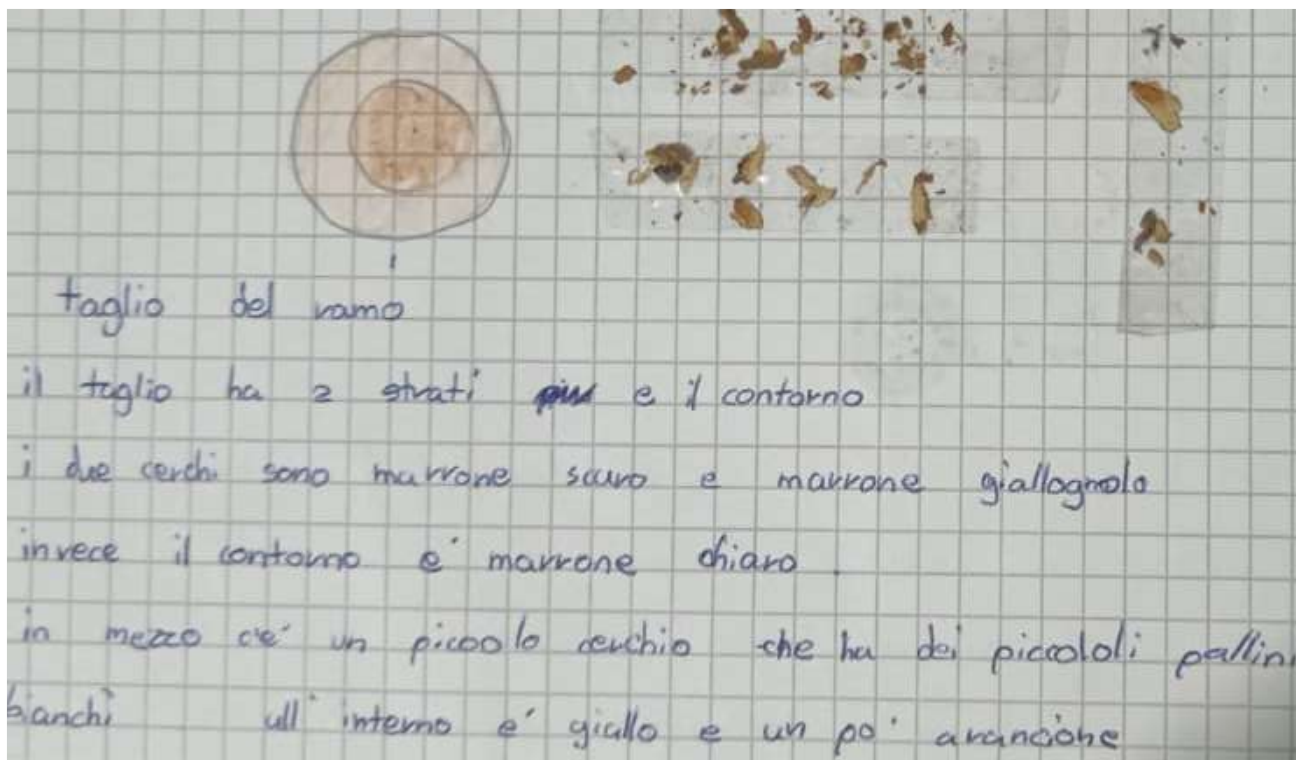 taglio del ramo
il taglio ha 2 strati e il contorno
i due cerchi sono marrone scuro e marrone giallognolo
invece il contorno e' marrone chiaro.
in mezzo c'e' un piccolo cerchio che ha dei piccololi pallini
bianchi all'interno e' giallo e un po' arancione